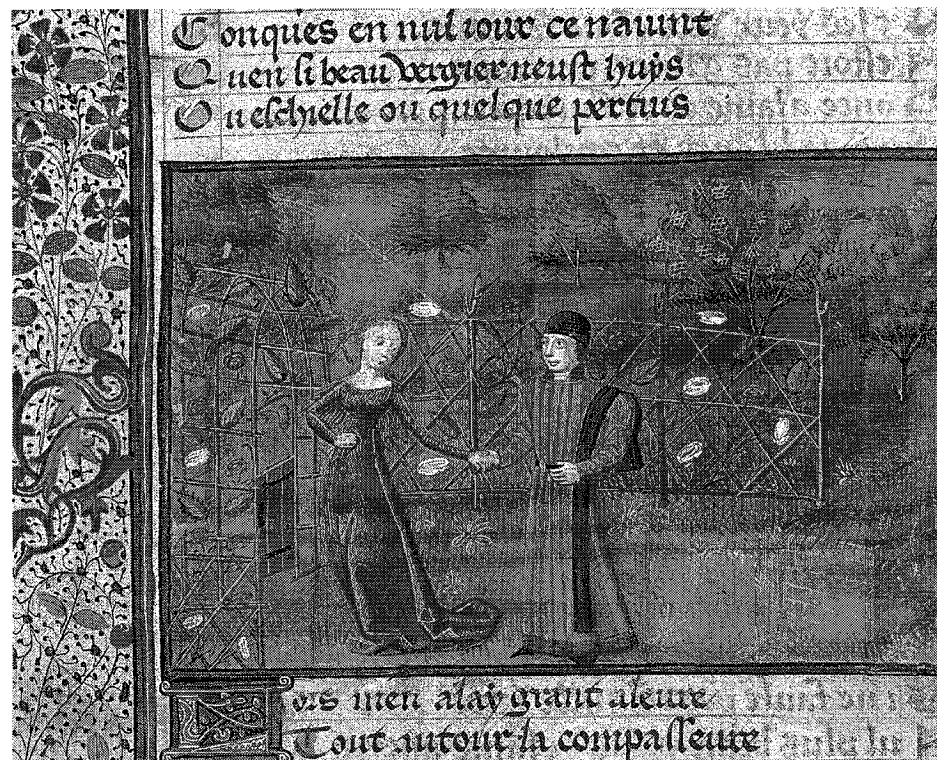 Conques en nul iour ce nauint
Quen si beau vergier neust huys
Ou eschielle ou quelque pertuis
Lors men alay grant aleure
Tout autour la compasseure